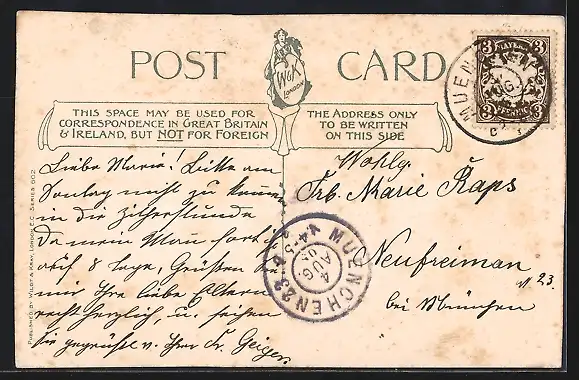 POST CARD
W&K
London
THIS SPACE MAY BE USED FOR
CORRESPONDENCE IN GREAT BRITAIN
& IRELAND, BUT NOT FOR FOREIGN
THE ADDRESS ONLY
TO BE WRITTEN
ON THIS SIDE
3 BAYERN 3
3 PFENNIG 3
MUEN
AUG
Liebe Marie! Bitte am
Sontag nicht zu kommen
in die Zitherstunde
Da mein Man fort ist
auf 8 Tage, Grüßen
mir Ihre liebe Eltern
recht herzlich, u. seien
Sie gegrüßt v. Ihrer Fr. Geiger.
Wohlg.
Frl. Marie Raps
Neufreiman
N 23.
bei München
MUENCHEN 23
4
AUG
4-5
PUBLISHED BY WILDT & KRAY, LONDON E.C. SERIES 602